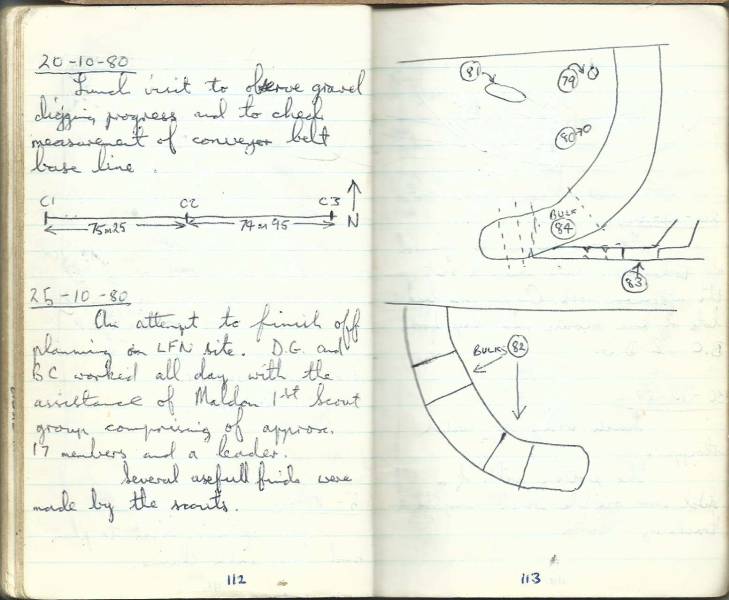 20-10-80
Lunch visit to observe gravel
digging progress and to check
measurement of conveyor belt
base line.
C1 C2 C3
75m25 74m95 N
25-10-80
An attempt to finish off
planning on LFN site. D.G. and
BC worked all day with the
assistance of Maldon 1st Scout
group comprising of approx.
17 members and a leader.
Several usefull finds were
made by the scouts.
112
81 79
80 70
BULK
84
83
BULKS 82
113